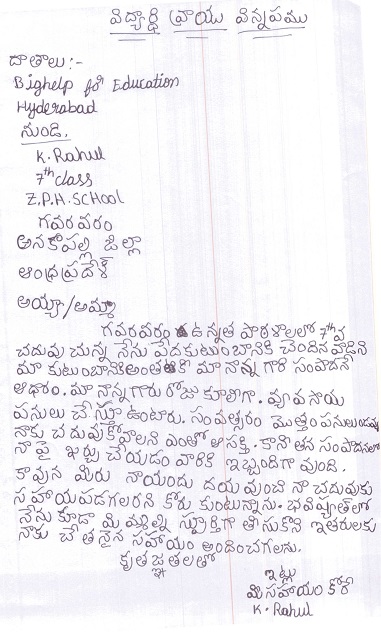 విద్యార్థి వ్రాయు విన్నపము
దాతాలు:-
Bighelp for Education
Hyderabad
నుండి.
K. Rahul
7th class
Z.P.H. SCHOOL
గవరవరం
అనకాపల్లి జిల్లా
ఆంధ్రప్రదేశ్
అయ్యా/అమ్మా
గవరవరం ఉన్నత పాఠశాలలో 7th వ
చదువు చున్న నేను పేదకుటుంబానికి చెందిన వాడిని
మా కుటుంబానికి అంతటికి మా నాన్న గారి సంపాదనే
ఆధారం. మా నాన్నగారు రోజు కూలిగా. వ్యవసాయ
పనులు చేస్తూ ఉంటారు. సంవత్సరం మొత్తం పనులుండవు
నాకు చదువుకోవాలని ఎంతో ఆసక్తి. కాని తన సంపాదనలో
నా పై ఖర్చు చేయడం వారికి ఇబ్బందిగా వుంది.
కావున మీరు నాయందు దయవుంచి నా చదువుకు
సహాయపడగలరని కోరు కుంటున్నాను. భవిష్యత్‌లో
నేను కూడా మిమ్మల్ని స్ఫూర్తిగా తీసుకొని ఇతరులకు
నాకు చేతనైన సహాయం అందించగలను.
కృతజ్ఞతలతో
ఇట్లు
మీ సహాయం కోరే
K. Rahul